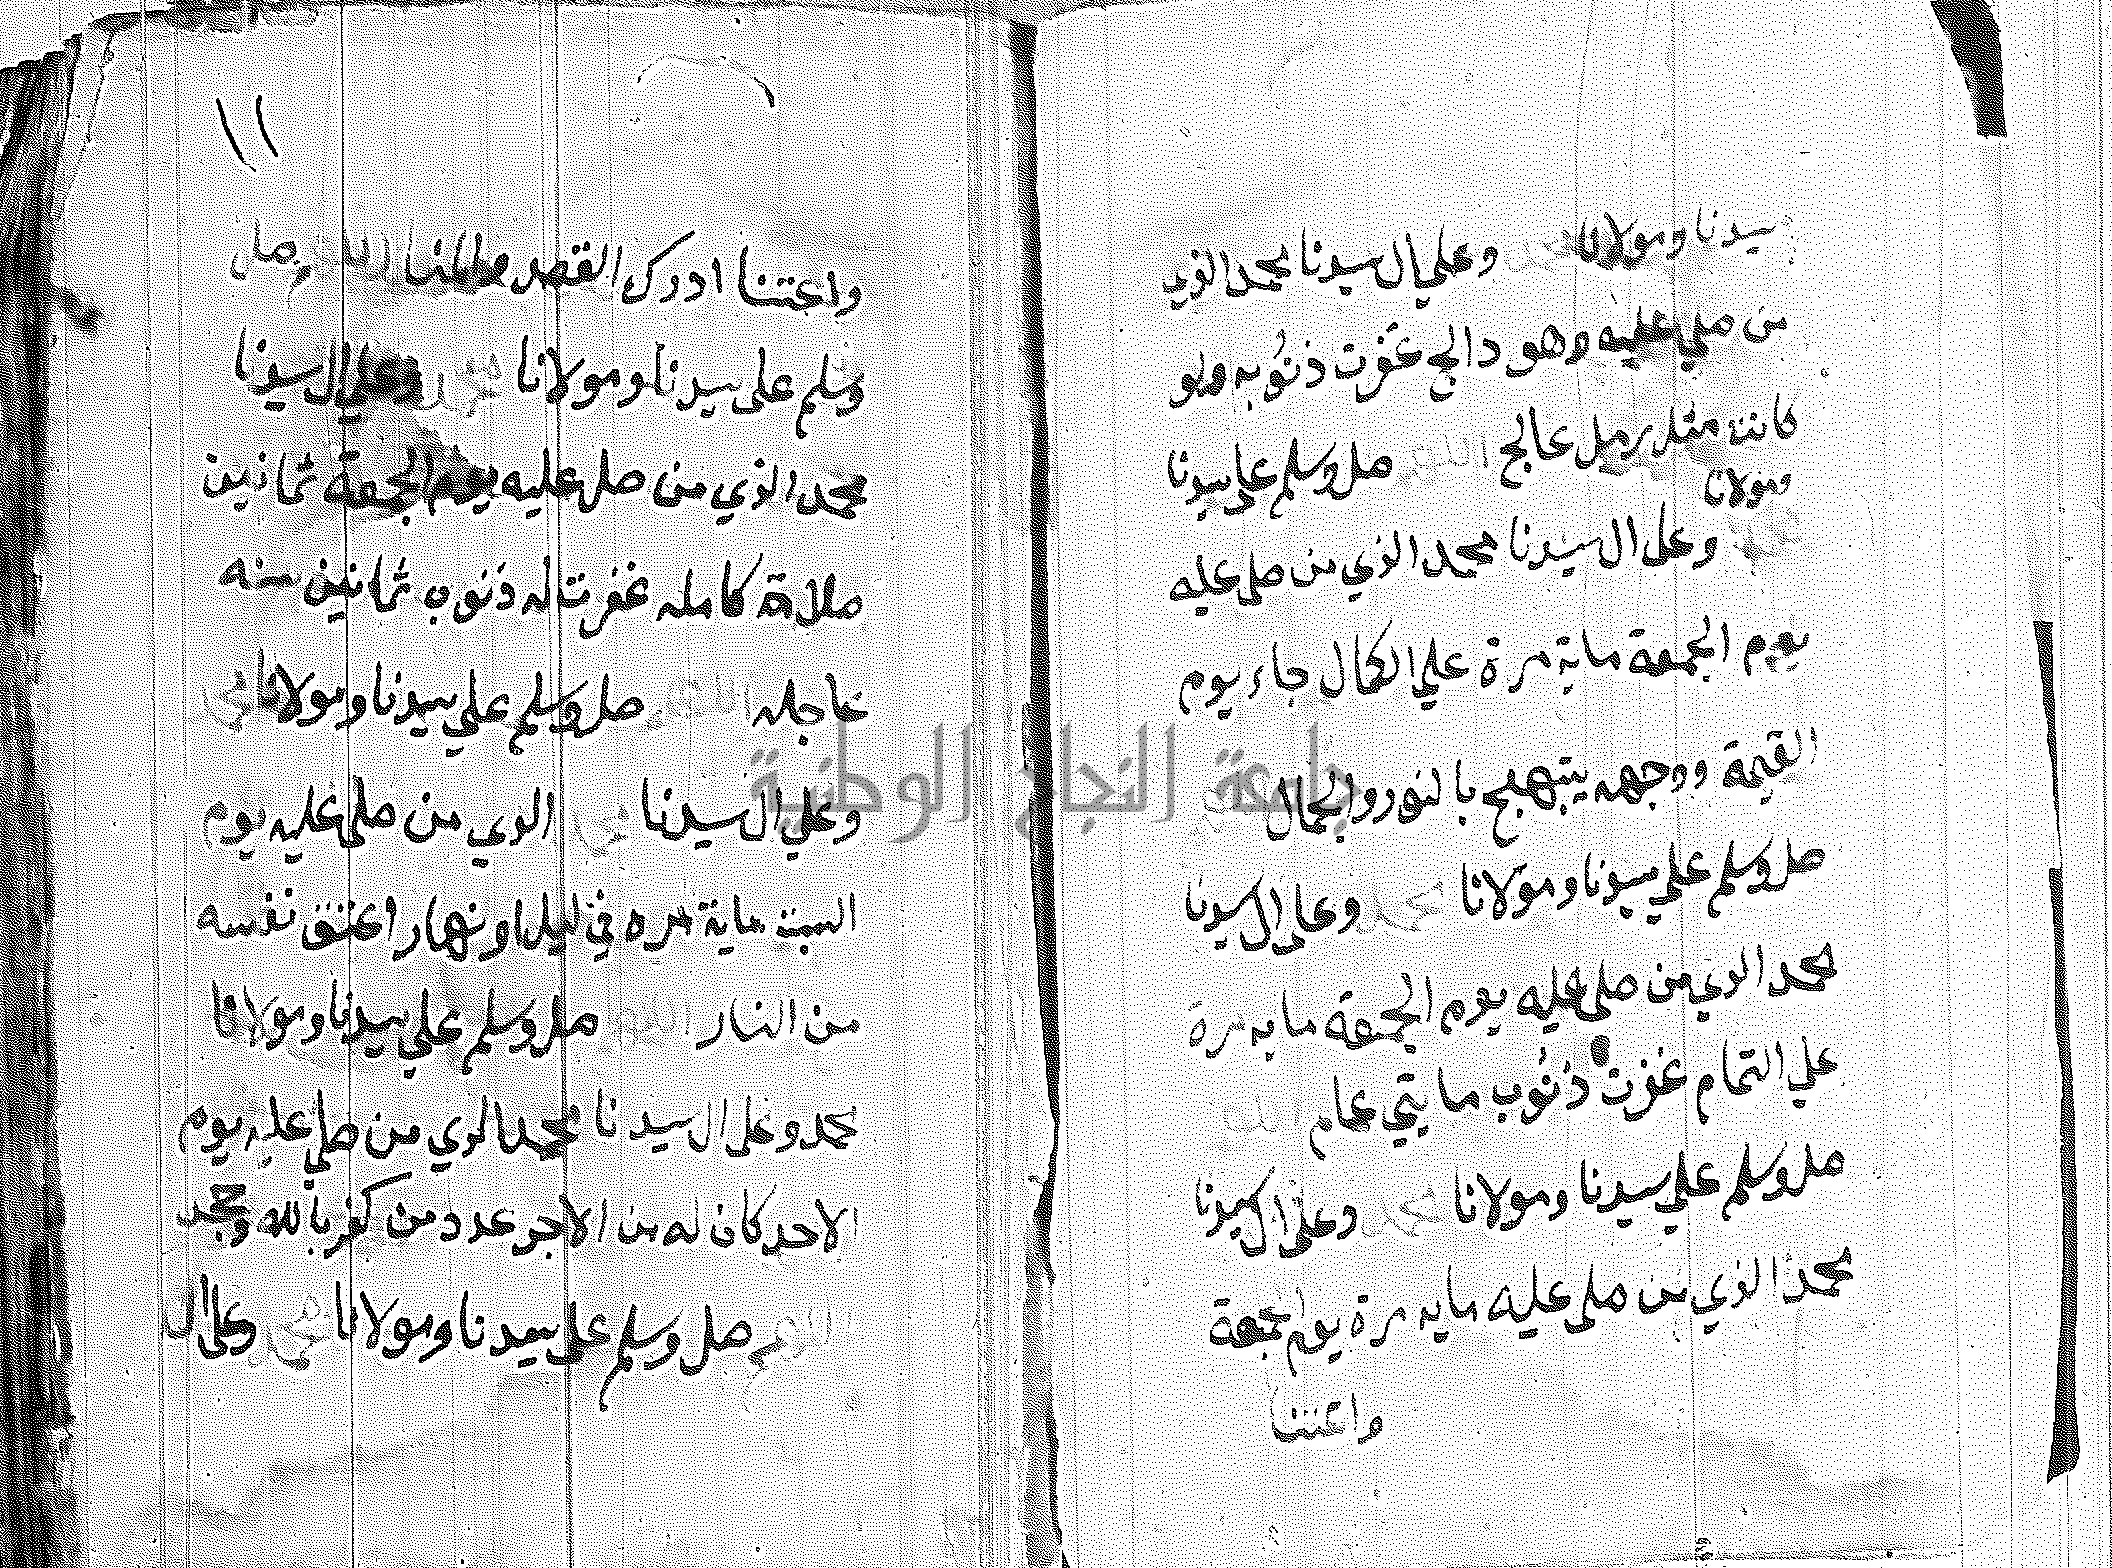 سيدنا ومولانا محمد وعلي ال سيدنا محمد الذي
من صلي عليه وهو دالج غفرت ذنوبه ولو
كانت مثل رمل عالج اللهم صل وسلم علي سيدنا
ومولانا
محمد وعلى ال سيدنا محمد الذي من صلى عليه
يوم الجمعة ماية مرة علي الكمال جاء يوم
القيمة ووجهه يتبهج بالنور والجمال
صل وسلم علي سيدنا ومولانا محمد وعلى ال سيدنا
محمد الذي من صلي عليه يوم الجمعة مايه مرة
علي التمام غفرت ذنوب مايتي عام
صل وسلم علي سيدنا ومولانا محمد وعلى ال سيدنا
محمد الذي من صلى عليه مايه مرة يوم جمعة
واعتنا
١١
واعتنا ادرك القصد والمنا اللهم صل
وسلم على سيدنا ومولانا محمد وعلي ال سيدنا
محمد الذي من صلى عليه يوم الجمعة ثمانين
صلاة كامله غفرت له ذنوب ثمانين سنه
عاجله اللهم صل وسلم علي سيدنا ومولانا محمد
وعلي ال سيدنا محمد الذي من صلى عليه يوم
السبت ماية مره في ليل او نهار اعتق نفسه
من النار اللهم صل وسلم علي سيدنا ومولانا
محمد وعلى ال سيدنا محمد الذي من صلى عليه يوم
الاحد كان له من الاجر عدد من كفر بالله وجحد
اللهم صل وسلم على سيدنا ومولانا محمد وعلى ال
جامعة النجاح الوطنية